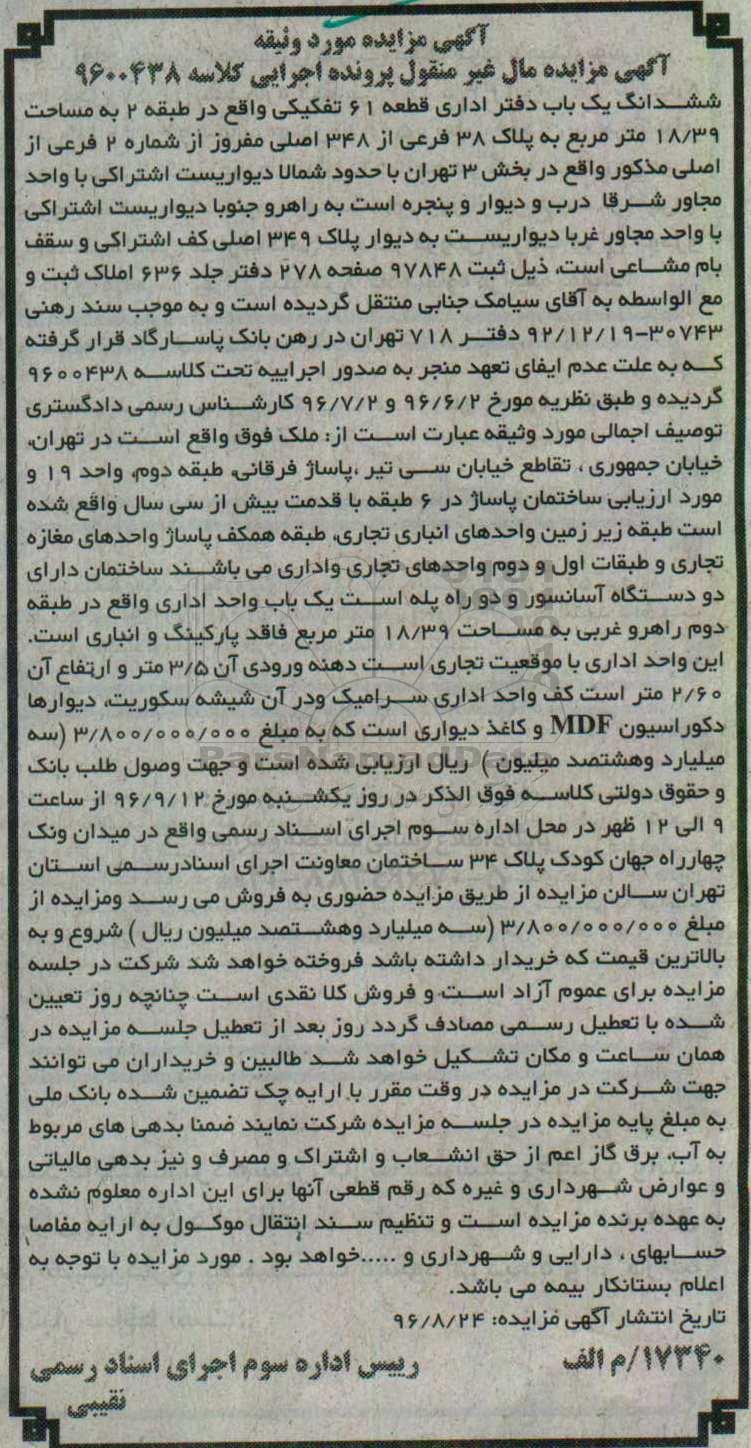 آگهی مزایده مورد وثیقه
آگهی مزایده مال غیر منقول پرونده اجرایی کلاسه ۹۶۰۰۴۳۸
ششدانگ یک باب دفتر اداری قطعه ۶۱ تفکیکی واقع در طبقه ۲ به مساحت
۱۸/۳۹ متر مربع به پلاک ۳۸ فرعی از ۳۴۸ اصلی مفروز از شماره ۲ فرعی از
اصلی مذکور واقع در بخش ۳ تهران با حدود شمالا دیواریست اشتراکی با واحد
مجاور شرقا درب و دیوار و پنجره است به راهرو جنوبا دیواریست اشتراکی
با واحد مجاور غربا دیواریست به دیوار پلاک ۳۴۹ اصلی کف اشتراکی و سقف
بام مشاعی است، ذیل ثبت ۹۷۸۴۸ صفحه ۲۷۸ دفتر جلد ۶۳۶ املاک ثبت و
مع الواسطه به آقای سیامک جنابی منتقل گردیده است و به موجب سند رهنی
۳۰۷۴۳-۹۲/۱۲/۱۹ دفتر ۷۱۸ تهران در رهن بانک پاسارگاد قرار گرفته
که به علت عدم ایفای تعهد منجر به صدور اجراییه تحت کلاسه ۹۶۰۰۴۳۸
گردیده و طبق نظریه مورخ ۹۶/۶/۲ و ۹۶/۷/۲ کارشناس رسمی دادگستری
توصیف اجمالی مورد وثیقه عبارت است از: ملک فوق واقع است در تهران،
خیابان جمهوری ، تقاطع خیابان سی تیر ،پاساژ فرقانی، طبقه دوم، واحد ۱۹ و
مورد ارزیابی ساختمان پاساژ در ۶ طبقه با قدمت بیش از سی سال واقع شده
است طبقه زیر زمین واحدهای انباری تجاری، طبقه همکف پاساژ واحدهای مغازه
تجاری و طبقات اول و دوم واحدهای تجاری واداری می باشند ساختمان دارای
دو دستگاه آسانسور و دو راه پله است یک باب واحد اداری واقع در طبقه
دوم راهرو غربی به مساحت ۱۸/۳۹ متر مربع فاقد پارکینگ و انباری است.
این واحد اداری با موقعیت تجاری است دهنه ورودی آن ۳/۵ متر و ارتفاع آن
۲/۶۰ متر است کف واحد اداری سرامیک ودر آن شیشه سکوریت، دیوارها
دکوراسیون MDF و کاغذ دیواری است که به مبلغ ۳/۸۰۰/۰۰۰/۰۰۰ (سه
میلیارد وهشتصد میلیون ) ریال ارزیابی شده است و جهت وصول طلب بانک
و حقوق دولتی کلاسه فوق الذکر در روز یکشنبه مورخ ۹۶/۹/۱۲ از ساعت
۹ الی ۱۲ ظهر در محل اداره سوم اجرای اسناد رسمی واقع در میدان ونک
چهارراه جهان کودک پلاک ۳۴ ساختمان معاونت اجرای اسنادرسمی استان
تهران سالن مزایده از طریق مزایده حضوری به فروش می رسد ومزایده از
مبلغ ۳/۸۰۰/۰۰۰/۰۰۰ (سه میلیارد وهشتصد میلیون ریال ) شروع و به
بالاترین قیمت که خریدار داشته باشد فروخته خواهد شد شرکت در جلسه
مزایده برای عموم آزاد است و فروش کلا نقدی است چنانچه روز تعیین
شده با تعطیل رسمی مصادف گردد روز بعد از تعطیل جلسه مزایده در
همان ساعت و مکان تشکیل خواهد شد طالبین و خریداران می توانند
جهت شرکت در مزایده در وقت مقرر با ارایه چک تضمین شده بانک ملی
به مبلغ پایه مزایده در جلسه مزایده شرکت نمایند ضمنا بدهی های مربوط
به آب، برق گاز اعم از حق انشعاب و اشتراک و مصرف و نیز بدهی مالیاتی
و عوارض شهرداری و غیره که رقم قطعی آنها برای این اداره معلوم نشده
به عهده برنده مزایده است و تنظیم سند انتقال موکول به ارایه مفاصا
حسابهای ، دارایی و شهرداری و .....خواهد بود . مورد مزایده با توجه به
اعلام بستانکار بیمه می باشد.
تاریخ انتشار آگهی مزایده: ۹۶/۸/۲۴
۱۷۳۴۰/م الف
رییس اداره سوم اجرای اسناد رسمی
نقیبی